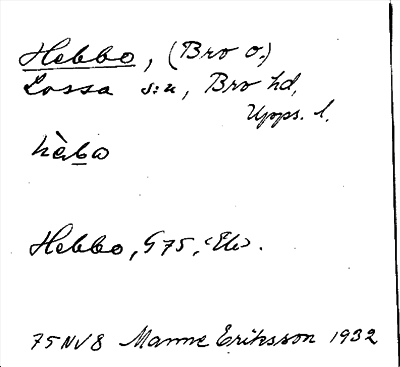 Hebbo, (Bro o.)
Lossa s:n, Bro hd,
Upps. l.
hàbo
Hebbo, G 75, <Ek>.
75 NV 8 Manne Eriksson 1932